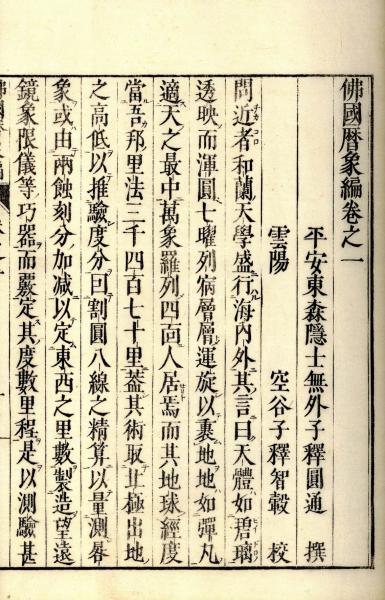 佛國曆象編卷之一
平安東森隱士無外子釋圓通 撰
雲陽 空谷子釋智瑴 校
問近者和蘭天學盛行海內外其言曰天體如碧璃
透映而渾圓七曜列痾層層運旋以裹地地如彈丸
適天之最中萬象羅列四面人居焉而其地球經度
當吾邦里法三千四百七十里蓋其術取北極出地
之高低以推驗度分回割圓八線之精算以量測晷
象或由兩蝕刻分加減以定東西之里數製造望遠
鏡象限儀等巧器而覈定其度數里程是以測驗甚